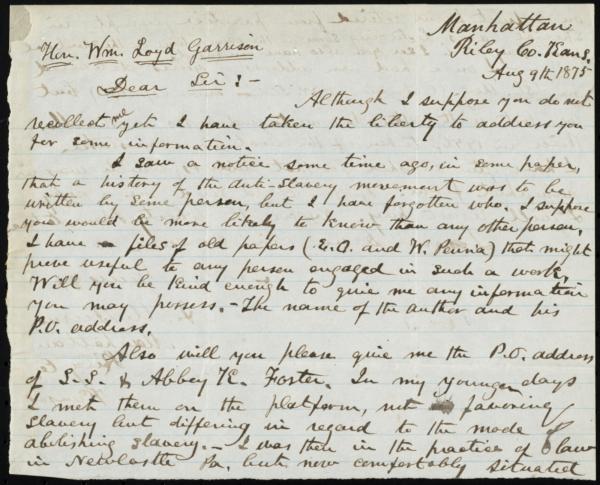 Manhattan
Riley Co. Kans.
Aug 9th 1875
Hon. Wm. Loyd Garrison
Dear Sir :-
Although I suppose you do not
recollect me yet I have taken the liberty to address you
for some information.
I saw a notice some time ago, in some paper,
that a history of the Anti-Slavery movement was to be
written by some person, but I have forgotten who. I suppose
you would be more likely to know than any other person,
I have files of old papers (E. O. and W. Penn'a) that might
prove useful to any person engaged in such a work.
Will you be kind enough to give me any information
you may possess. - The name of the author and his
P.O. address.
Also will you please give me the P.O. address
of S. S. & Abbey K. Foster. In my younger days
I met them on the platform, not favoring
slavery but differing in regard to the mode of
abolishing slavery. - I was then in the practice of law
in Newcastle Pa. but now comfortably situated